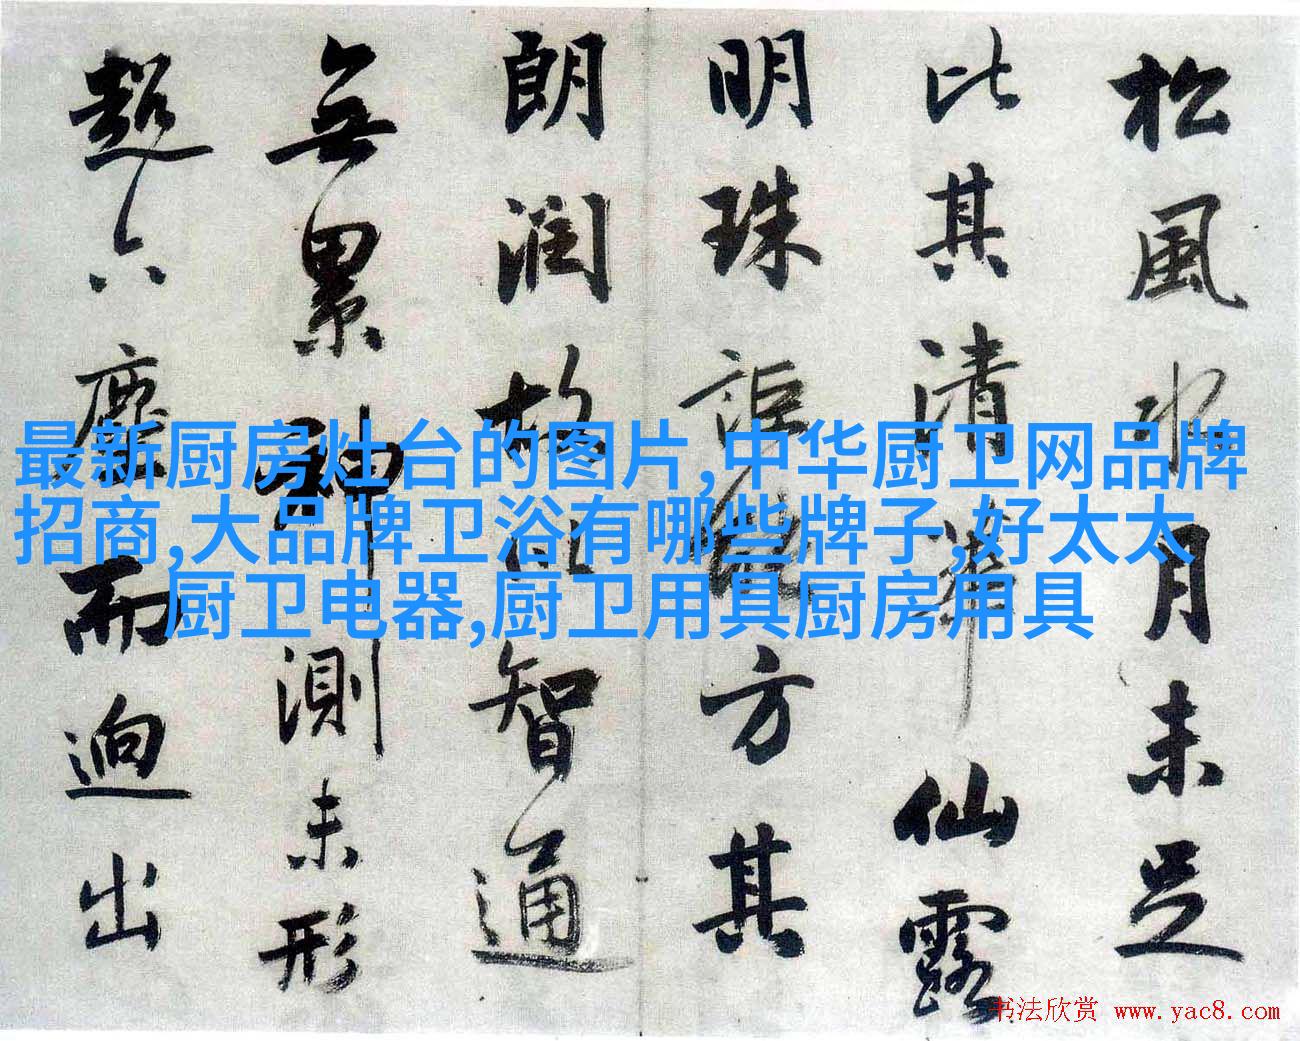 松風水月未足
比其清華仙露
明珠詎能方其
朗潤故以智通
無累神測未形
超六塵而迥出
最新厨房灶台的图片,中华厨卫网品牌
招商,大品牌卫浴有哪些牌子,好太太
厨卫电器,厨卫用具厨房用具
书法欣赏 www.yac8.com